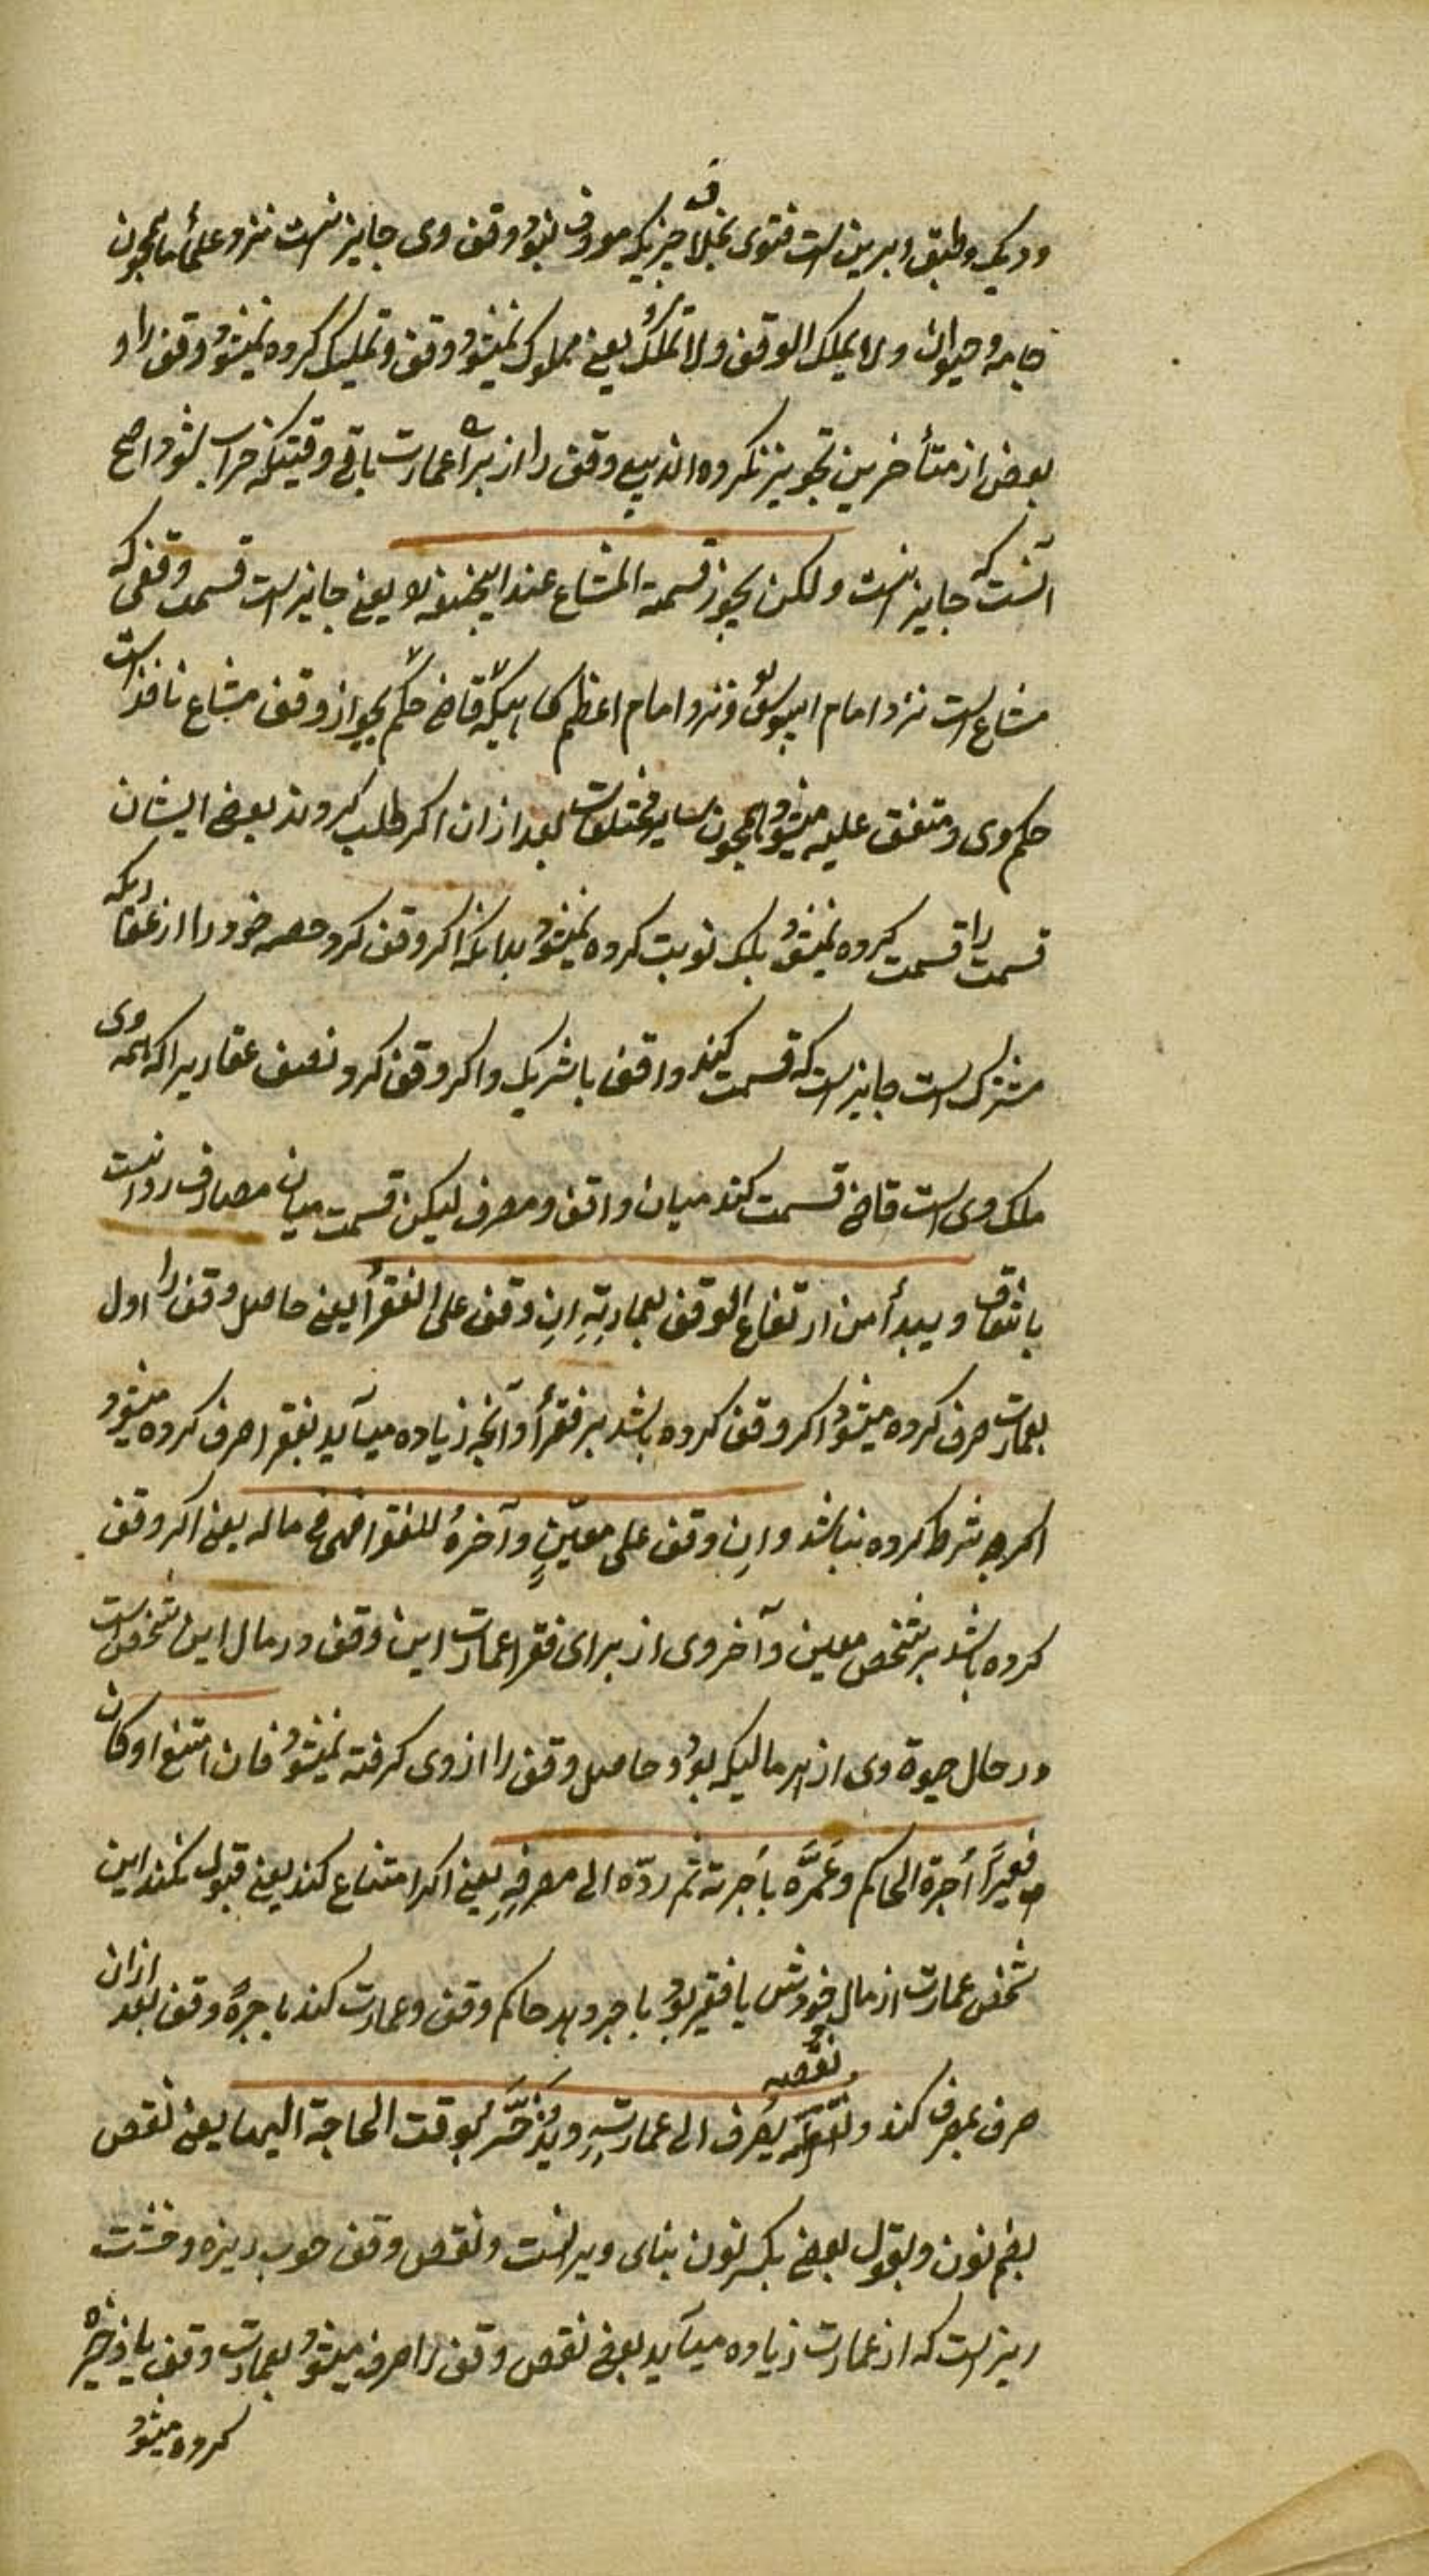 و دیک و طبق و برین است فتوی بخلاف چیزیکه معروف نبود وقف وی جایز نیست نزد علمأ ما همچون
جامه و حیوان ولا یملک الوقف ولا تملک یعنی مملوک نمیشود وقف و تملیک کرده نمیشود وقف را و
بعض از متأخرین تجویز کرده اند بیع وقف را از براء عمارت باقی وقتیکه خراب شود واصح
آنست که جایز نیست ولکن یجوز قسمة المشاع عند ابیحنیفه لا یعنی جایز است قسمت وقفی که
مشاع است نزد امام ابیوسف و نزد امام اعظم قاضی حکم بجواز وقف مشاع نافذ است
حکم وی و متفق علیه میشود همچون سایر مختلفات بعد از ان اکر طلب کردند بعض ایشان
قسمت را قسمت کرده نمیشود بلک نوبت کرده نمیشود بدانکه اکر وقف کرد حصه خود را از عقاریکه
مشترک است جایز است که قسمت کند واقف با شریک و اکر وقف کرد نصف عقاریرا که همه وی
ملک وی است قاضی قسمت کند میان واقف و مصرف لیکن قسمت میان مصارف روا نیست
باتفاق و یبدأ من ارتفاع الوقف بعمارتِهِ اِن وقف علی الفقرأ یعنی حاصل وقف را اول
بعمارت صرف کرده میشود اکر وقف کرده باشد بر فقرأ و آنچه زیاده میآید بفقرا صرف کرده میشود
اکرچه شرط کرده نباشد واِن وقف علی معیّنٍ وآخرهُ للفقرا فهی فی ماله یعنی اکر وقف
کرده باشد بر شخص معین و آخر وی از برای فقرا عمارت این وقف در مال این شخص است
در حال حیوة وی از هر مالیکه بود و حاصل وقف را از وی کرفته نمیشود فان امتنع او کان
فقیرًا أجرة الحاکم وعَمَّرَه بأجرته ثم ردّه الی مصرفِهِ یعنی اکر امتناع کند یعنی قبول نکند این
شخص عمارت از مال خودش یا فقیر بود باجر دهد حاکم وقف و عمارت کند باجرهٔ وقف بعد ازان
صرف بمصرف کند ونقضه یُصرف الی عمارتِهِ ویُدّخَر لوقت الحاجة الیها یعنی نقض
بضم نون و بقول بعض بکسر نون بنای ویرانست و نقض وقف چوب ریزه و خشت
ریز است که از عمارت زیاده میآید یعنی نقض وقف را صرف میشود بعمارت وقف یا ذخیره
کرده میشود